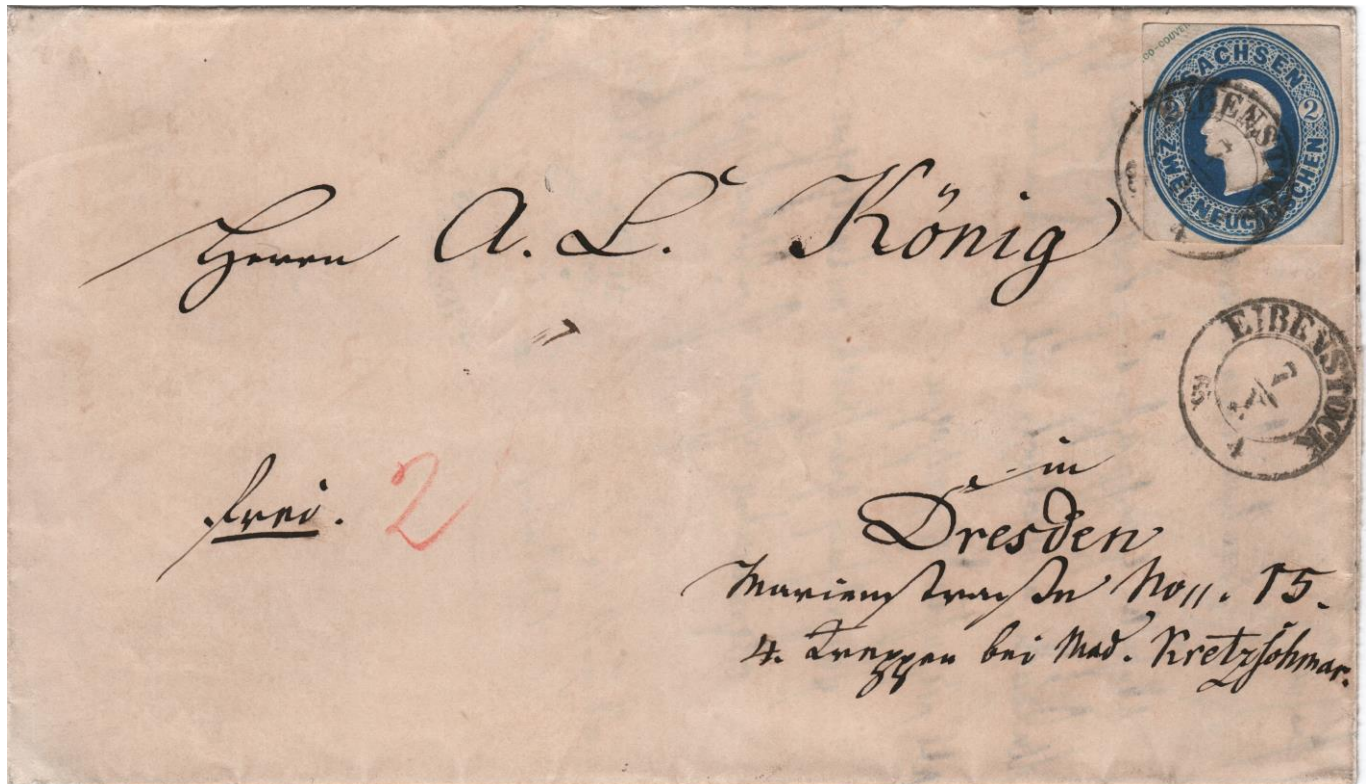 OD-COUVE
SACHSEN
2 2
ZWEI NEUGROSCHEN
EIBENSTOCK
4
Herrn A. L. König
EIBENSTOCK
7
4
frei. 2
in
Dresden
Marienstraße No 15.
4. Treppen bei Mad. Kretzschmar.